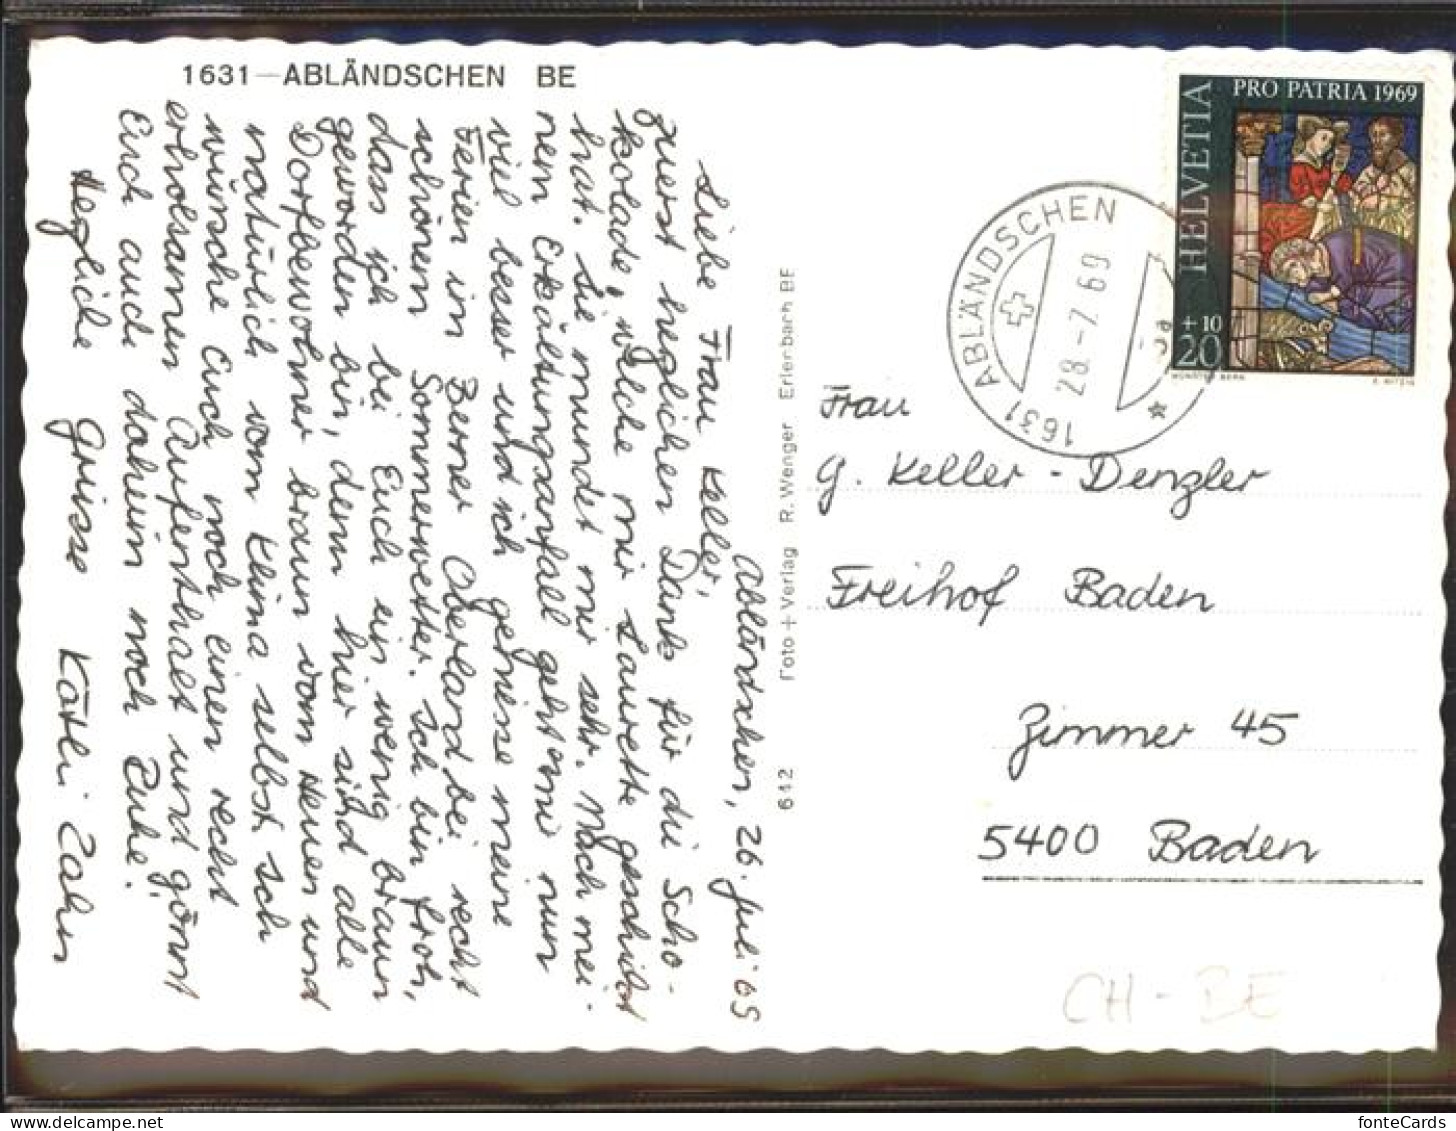 1631 – ABLÄNDSCHEN BE
Abländschen, 26. Juli 69
Liebe Frau Keller,
Zuerst herzlichen Dank für die Scho-
kolade, welche mir Laurette geschickt
hat. Sie mundet mir sehr. Nach mei-
nem Erkältungsanfall geht es mir nun
viel besser und ich geniesse meine
Ferien im Berner Oberland bei recht
schönem Sommerwetter. Ich bin froh,
dass ich bei Euch ein wenig braun
geworden bin, denn hier sind alle
Dorfbewohner braun vom Heuen und
natürlich vom Klima selbst. Ich
wünsche Euch noch einen recht
erholsamen Aufenthalt und gönnt
Euch auch daheim noch Ruhe.
Herzliche Grüsse Kätli Zahn
612 Foto + Verlag R. Wenger Erlenbach BE
HELVETIA
PRO PATRIA 1969
+10
20
MÜNSTER BERN
1631 ABLÄNDSCHEN
28.-7.69
Frau
G. Keller-Denzler
Freihof Baden
Zimmer 45
5400 Baden
CH-BE
fonteCards